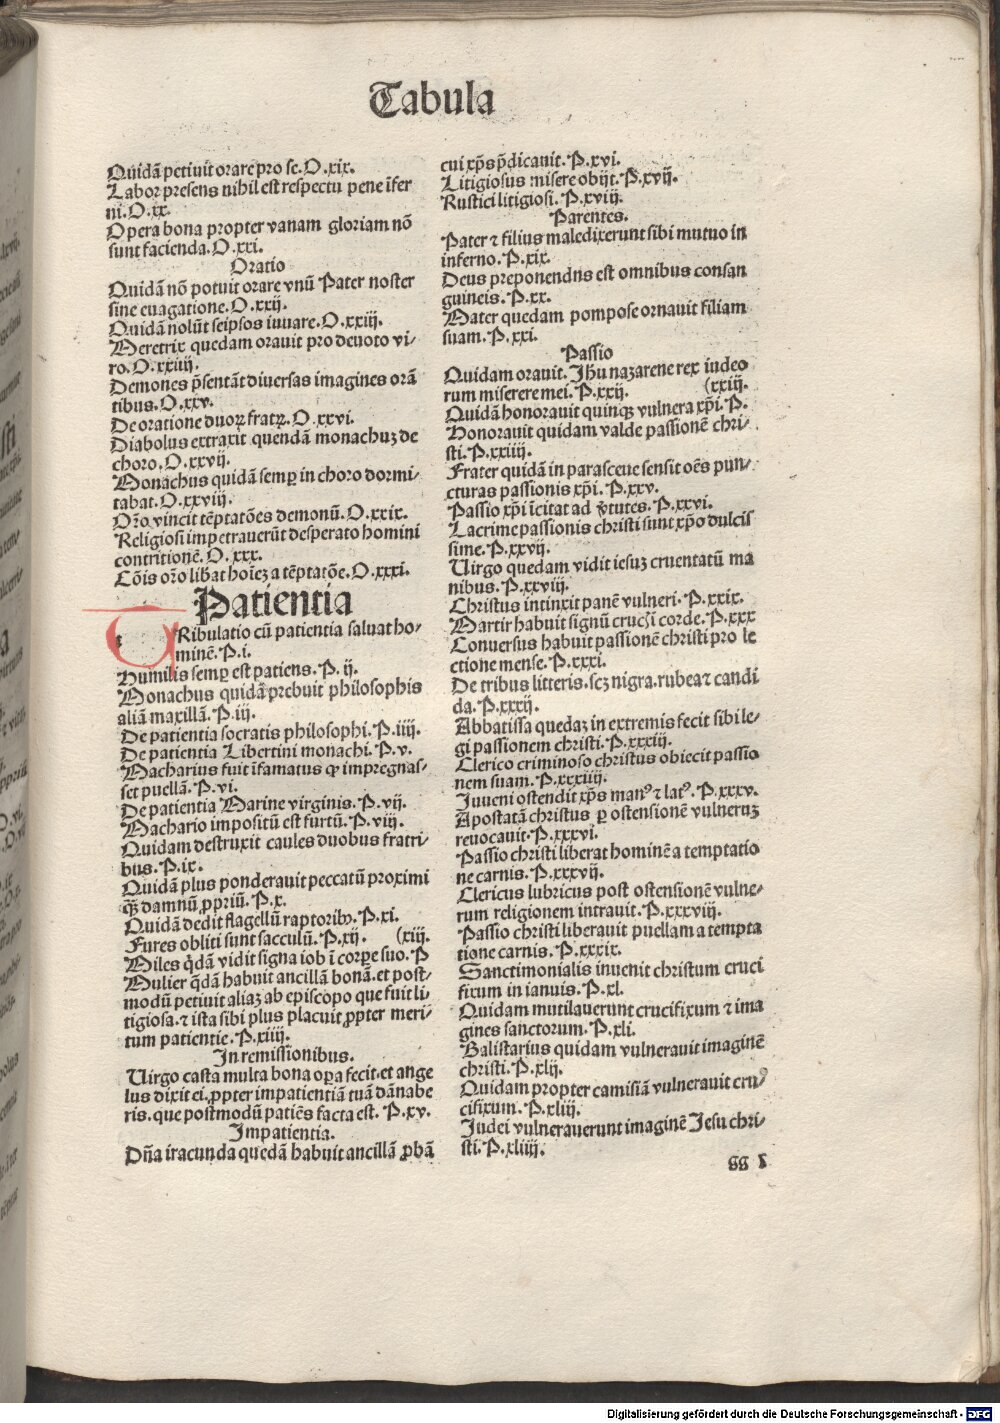 Tabula
Quidā petiuit orare pro se. O .xix.
Labor presens nihil est respectu pene īfer
ni. O .xx.
Opera bona propter vanam gloriam nō
sunt facienda. O .xxi.
Oratio
Quidā nō potuit orare vnū Pater noster
sine euagatione. O .xxij.
Quidā nolūt seipsos iuuare. O .xxiij.
Meretrix quedam orauit pro deuoto vi-
ro. O .xxiiij.
Demones p̄sentāt diuersas imagines orā
tibus. O .xxv.
De oratione duoꝝ fratꝝ. O .xxvi.
Diabolus extraxit quendā monachuꝫ de
choro. O .xxvij.
Monachus quidā semꝑ in choro dormi-
tabat. O .xxviij.
Oro vincit tēptatōes demonū. O .xxix.
Religiosi impetrauerūt desperato homini
contritionē. O .xxx.
Cōis oro libat hoīeꝫ a tēptatōe. O .xxxi.
Patientia
TRibulatio cū patientia saluat ho-
minē. P .i.
Humilis semꝑ est patiens. P .ij.
Monachus quidā prebuit philosophis
aliā maxillā. P .iij.
De patientia socratis philosophi. P .iiij.
De patientia Libertini monachi. P .v.
Macharius fuit īfamatus ꝙ impregnas-
set puellā. P .vi.
De patientia Marine virginis. P .vij.
Machario impositū est furtū. P .viij.
Quidam destruxit caules duobus fratri-
bus. P .ix.
Quidā plus ponderauit peccatū proximi
qꝫ damnū ꝓpriū. P .x.
Quidā dedit flagellū raptoribꝰ. P .xi.
Fures obliti sunt sacculū. P .xij. (xiij.
Miles qdā vidit signa iob ī corꝑe suo. P
Mulier qdā habuit ancillā bonā. et post-
modū petiuit aliaꝫ ab episcopo que fuit li-
tigiosa. ⁊ ista sibi plus placuit ꝓpter meri-
tum patientie. P .xiiij.
In remissionibus.
Uirgo casta multa bona oꝑa fecit. et ange
lus dixit ei. ꝓpter impatientiā tuā dānabe
ris. que postmodū patiēs facta est. P .xv.
Impatientia.
Dn̄a iracunda quedā habuit ancillā ꝓbā
cui xp̄s p̄dicauit. P .xvi.
Litigiosus misere obijt. P .xvij.
Rustici litigiosi. P .xviij.
Parentes.
Pater ⁊ filius maledixerunt sibi mutuo in
inferno. P .xix.
Deus preponendns est omnibus consan
guineis. P .xx.
Mater quedam pompose ornauit filiam
suam. P .xxi.
Passio
Quidam orauit. Jh̄u nazarene rex iudeo
rum miserere mei. P .xxij. (xxiij.
Quidā honorauit quinqꝫ vulnera xp̄i. P.
Honorauit quidam valde passionē chri-
sti. P .xxiiij.
Frater quidā in parasceue sensit oēs pun-
cturas passionis xp̄i. P .xxv.
Passio xp̄i īcitat ad v̓tutes. P .xxvi.
Lacrime passionis christi sunt xp̄o dulcis
sime. P .xxvij.
Uirgo quedam vidit iesuꝫ cruentatū ma
nibus. P .xxviij.
Christus intinxit panē vulneri. P .xxix.
Martir habuit signū cruci corde. P .xxx
Conuersus habuit passionē christi pro le
ctione mense. P .xxxi.
De tribus litteris. scꝫ nigra. rubea ⁊ candi
da. P .xxxij.
Abbatissa quedaꝫ in extremis fecit sibi le-
gi passionem christi. P .xxxiij.
Clerico criminoso christus obiecit passio
nem suam. P .xxxiiij.
Juueni ostendit xp̄s manꝰ ⁊ latꝰ. P .xxxv.
Apostatā christus ꝑ ostensionē vulneruꝫ
reuocauit. P .xxxvi.
Passio christi liberat hominē a temptatio
ne carnis. P .xxxvij.
Clericus lubricus post ostensionē vulne-
rum religionem intrauit. P .xxxviij.
Passio christi liberauit puellam a tempta
tione carnis. P .xxxix.
Sanctimonialis inuenit christum cruci
fixum in ianuis. P .xl.
Quidam mutilauerunt crucifixum ⁊ ima
gines sanctorum. P .xli.
Balistarius quidam vulnerauit imaginē
christi. P .xlij.
Quidam propter camisiā vulnerauit cru-
cifixum. P .xliij.
Judei vulnerauerunt imaginē Jesu chri-
sti. P .xliiij.
gg 1
Digitalisierung gefördert durch die Deutsche Forschungsgemeinschaft - DFG